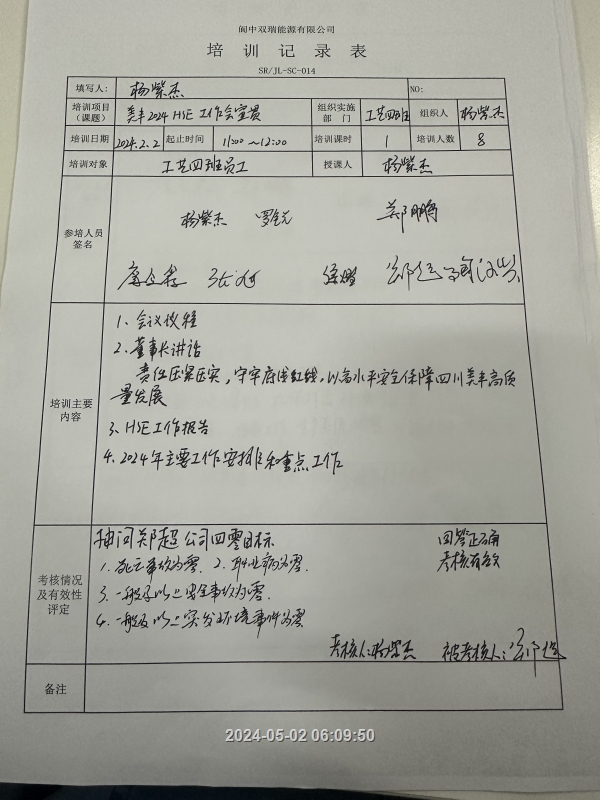 阆中双瑞能源有限公司
培训记录表
SR/JL-SC-014
填写人： 杨紫杰 NO:
培训项目（课题） 美丰2024 HSE 工作会宣贯 组织实施部门 工艺四班 组织人 杨紫杰
培训日期 2024.2.2 起止时间 11:00～12:00 培训课时 1 培训人数 8
培训对象 工艺四班员工 授课人 杨紫杰
参培人员签名
杨紫杰 郑鹏
郑超
培训主要内容
1、会议议程
2、董事长讲话
责任压紧压实，守牢底线红线，以高水平安全保障四川美丰高质
量发展
3、HSE工作报告
4、2024年主要工作安排和重点工作
考核情况及有效性评定
抽问郑超公司四零目标 回答正确
1、死亡事故为零. 2、职业病为零. 考核有效
3、一般及以上安全事故为零.
4、一般及以上突发环境事件为零
考核人:杨紫杰 被考核人:郑超
备注
2024-05-02 06:09:50